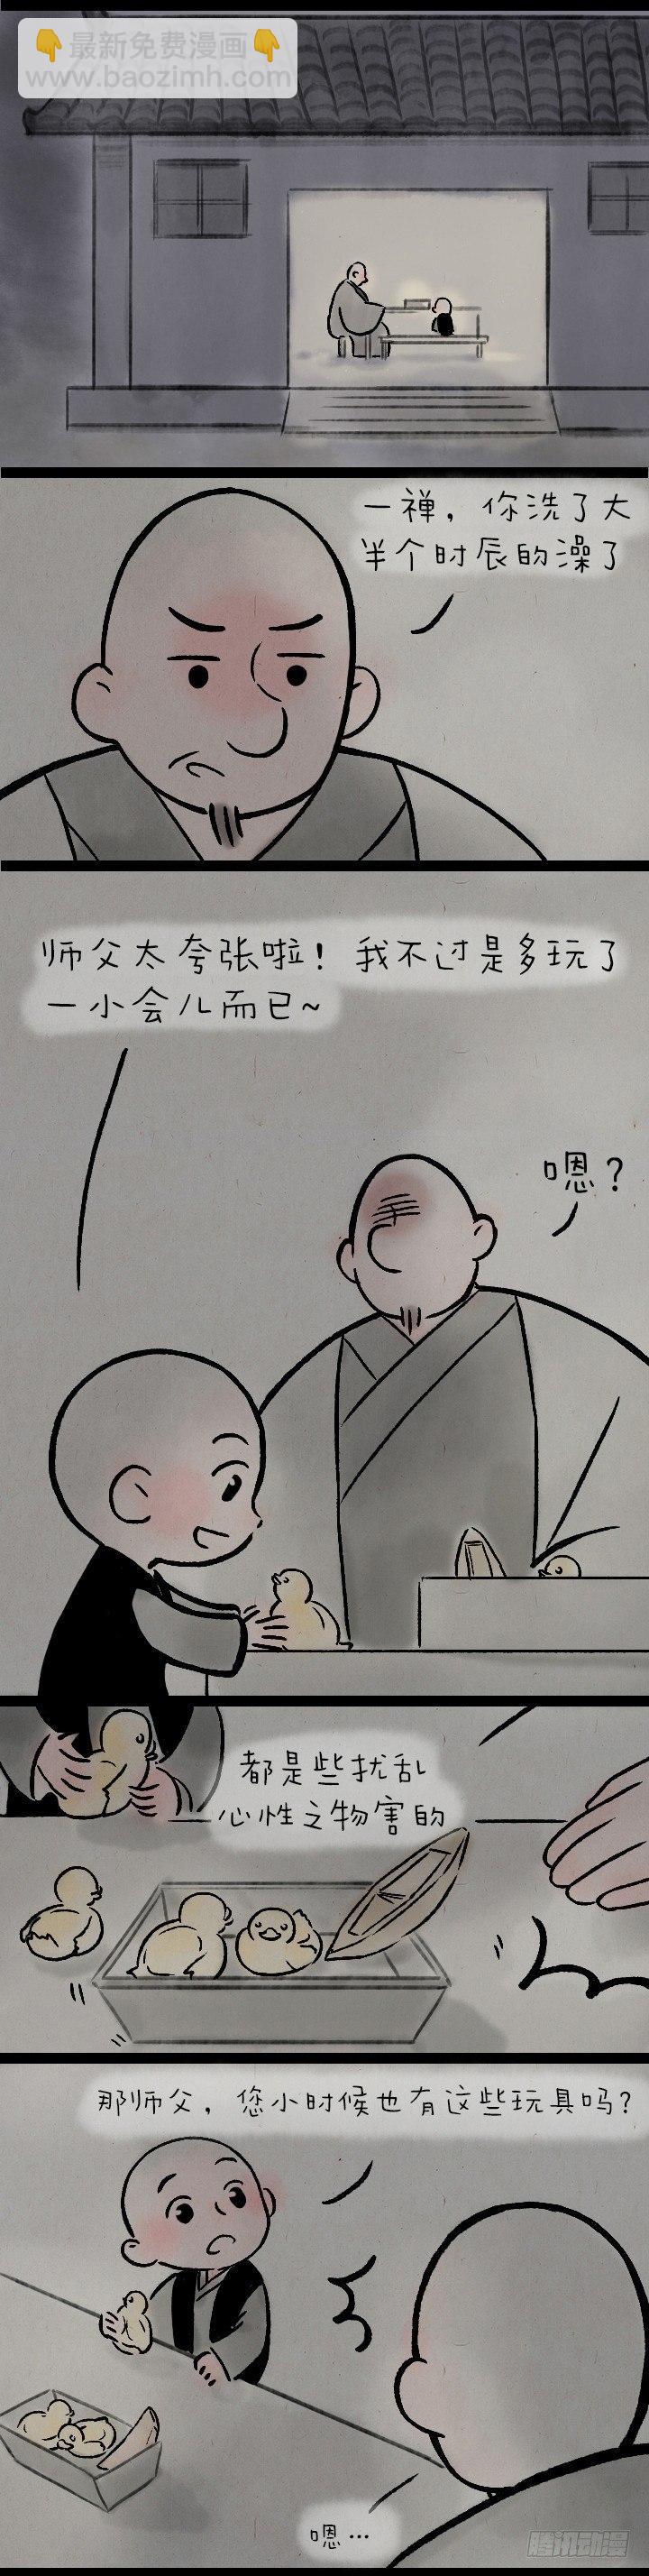 👇最新免费漫画👇
www.baozimh.com
一禅，你洗了大
半个时辰的澡了
师父太夸张啦！我不过是多玩了
一小会儿而已~
嗯？
都是些扰乱
心性之物害的
那师父，您小时候也有这些玩具吗？
嗯…
腾讯动漫